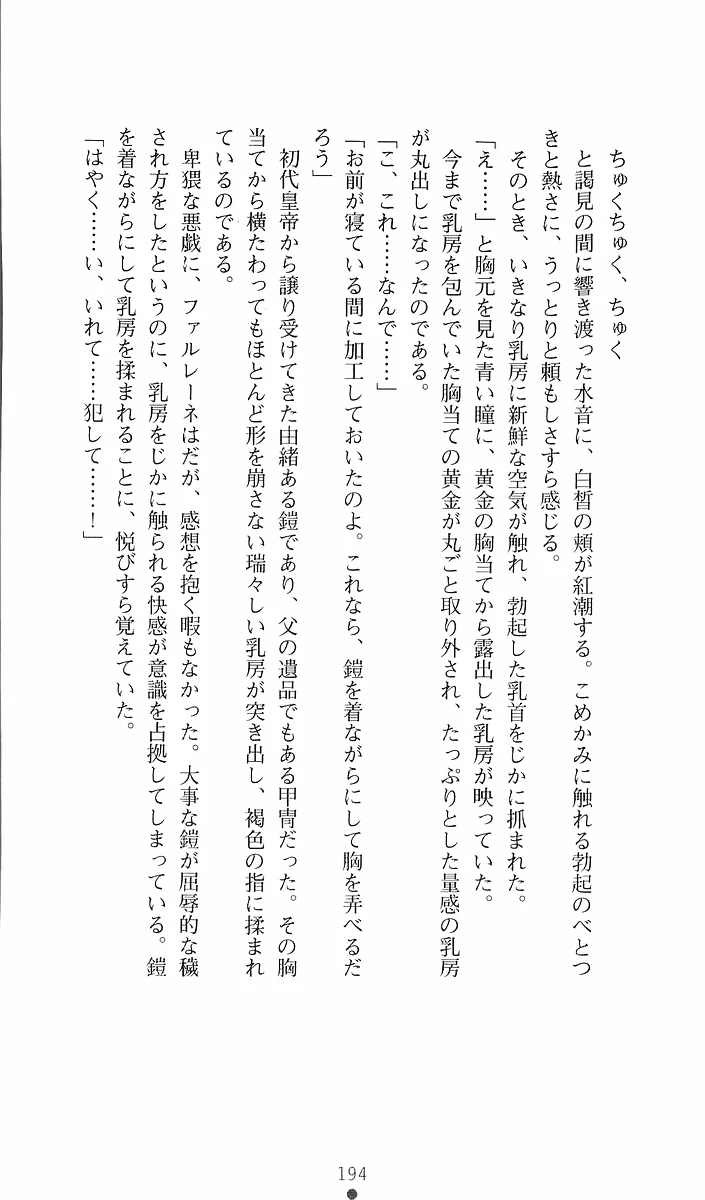 ちゅくちゅく、ちゅく
と謁見の間に響き渡った水音に、白皙の頬が紅潮する。こめかみに触れる勃起のべとつ
きと熱さに、うっとりと頼もしさすら感じる。
そのとき、いきなり乳房に新鮮な空気が触れ、勃起した乳首をじかに抓まれた。
「え……」と胸元を見た青い瞳に、黄金の胸当てから露出した乳房が映っていた。
今まで乳房を包んでいた胸当ての黄金が丸ごと取り外され、たっぷりとした量感の乳房
が丸出しになったのである。
「こ、これ……なんで……」
「お前が寝ている間に加工しておいたのよ。これなら、鎧を着ながらにして胸を弄べるだ
ろう」
初代皇帝から譲り受けてきた由緒ある鎧であり、父の遺品でもある甲冑だった。その胸
当てから横たわってもほとんど形を崩さない瑞々しい乳房が突き出し、褐色の指に揉まれ
ているのである。
卑猥な悪戯に、ファルレーネはだが、感想を抱く暇もなかった。大事な鎧が屈辱的な穢
され方をしたというのに、乳房をじかに触られる快感が意識を占拠してしまっている。鎧
を着ながらにして乳房を揉まれることに、悦びすら覚えていた。
「はやく……い、いれて……犯して……！」
194